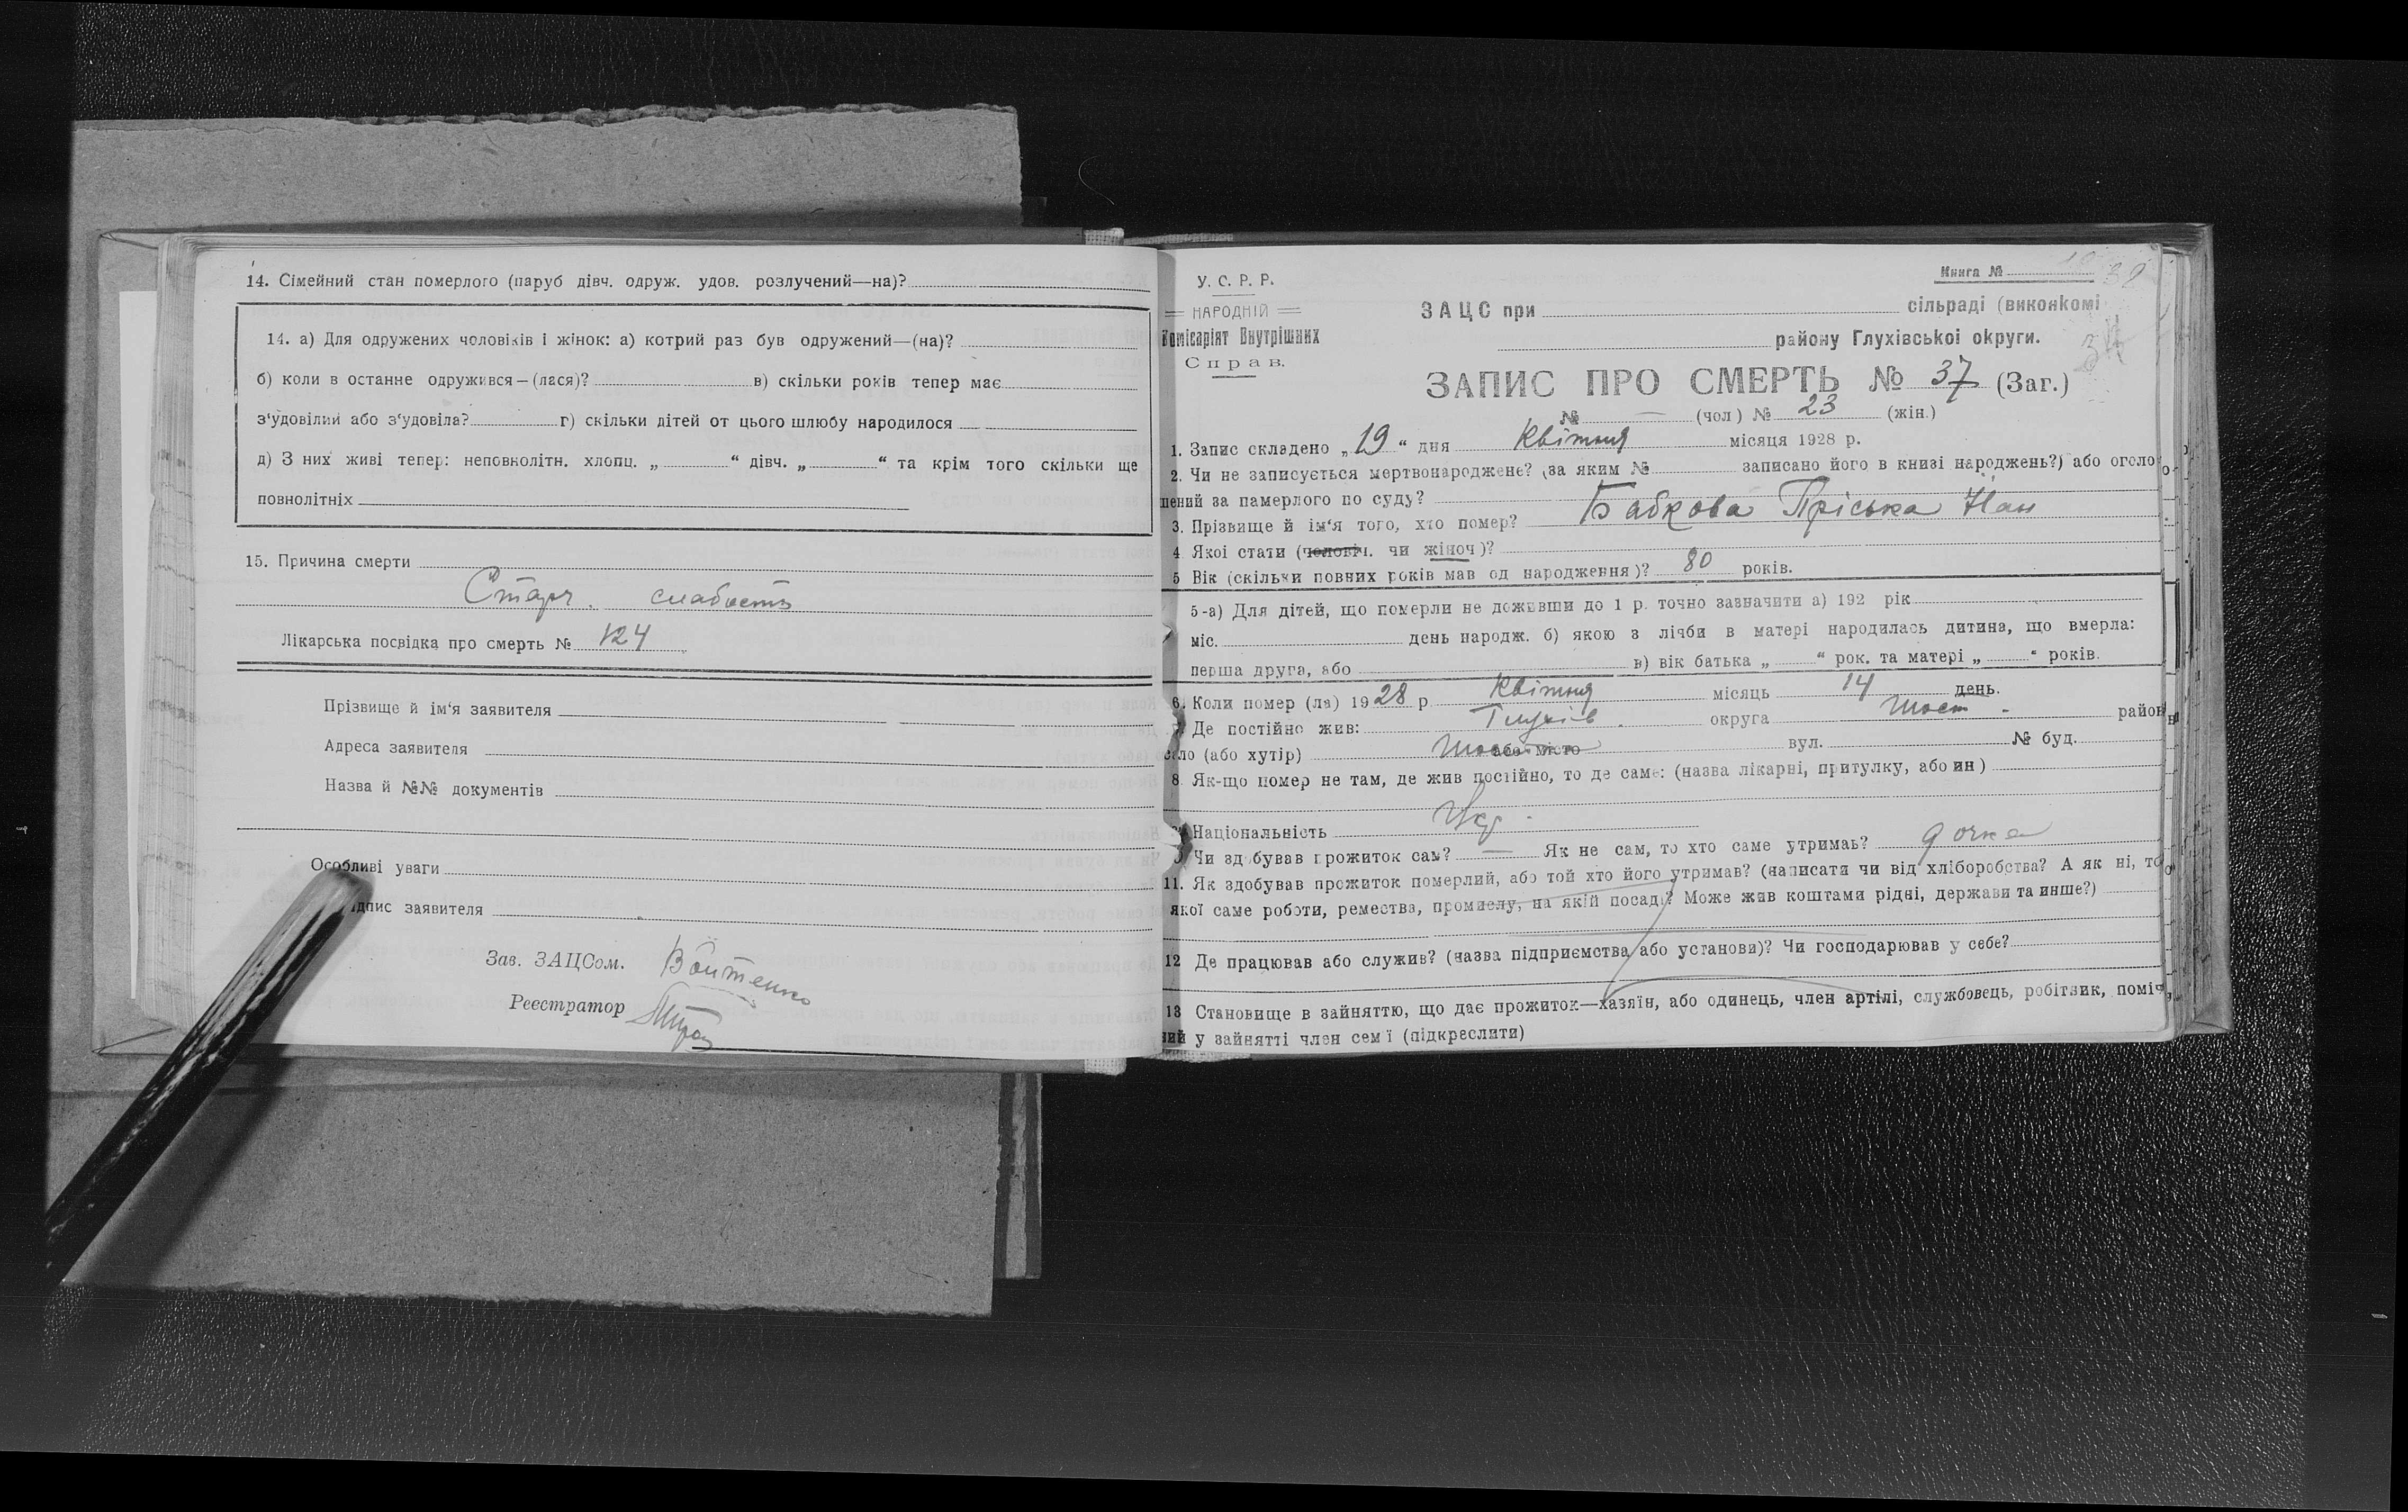 14. Сімейний стан померлого (паруб дівч. одруж. удов. розлучений—на)?
14. а) Для одружених чоловіків і жінок: а) котрий раз був одружений—(на)?
б) коли в останне одружився—(лася)? в) скільки років тепер має
з'удовілий або з'удовіла? г) скільки дітей от цього шлюбу народилося
д) З них живі тепер: неповнолітн. хлопц. „ “ дівч. „ “ та крім того скільки ще
повнолітніх
15. Причина смерти
Старч. слабость
Лікарська посвідка про смерть № 124
Прізвище й ім'я заявителя
Адреса заявителя
Назва й №№ документів
Особливі уваги
дпис заявителя
Зав. ЗАЦСом. Войтенко
Реєстратор
У. С. Р. Р.
НАРОДНІЙ
Комісаріят Внутрішних
Справ.
Книга №
ЗАЦС при сільраді (виконкомі
району Глухівської округи.
ЗАПИС ПРО СМЕРТЬ № 37 (Заг.)
№ — (чол) № 23 (жін.)
1. Запис складено „19“ дня Квітня місяця 1928 р.
2. Чи не записується мертвонароджене? (за яким № записано його в книзі народжень?) або оголо
шений за памерлого по суду?
3. Прізвище й ім'я того, хто помер? Бабкова Пріська Іван
4 Якої стати (чоловіч. чи жіноч)?
5 Вік (скільки повних років мав од народження)? 80 років.
5-а) Для дітей, що померли не доживши до 1 р. точно зазначити а) 192 рік
міс. день народж. б) якою з лічби в матері народилась дитина, що вмерла:
перша друга, або в) вік батька „ “ рок. та матері „ “ років.
6. Коли помер (ла) 1928 р Квітня місяць 14 день.
7. Де постійно жив: Глухів. округа Шост. район
село (або хутір) або місто вул. № буд.
8. Як-що помер не там, де жив постійно, то де саме: (назва лікарні, притулку, або ин)
9. Національність Укр.
Чи здобував прожиток сам? — Як не сам, то хто саме утримав? дочка
11. Як здобував прожиток померлий, або той хто його утримав? (написати чи від хліборобства? А як ні, то
якої саме роботи, ремества, промислу, на якій посаді? Може жив коштами рідні, держави та инше?)
12 Де працював або служив? (назва підприємства або установи)? Чи господарював у себе?
13 Становище в зайняттю, що дає прожиток—хазяїн, або одинець, член артілі, службовець, робітник, поміч
ний у зайнятті член сем'ї (підкреслити)